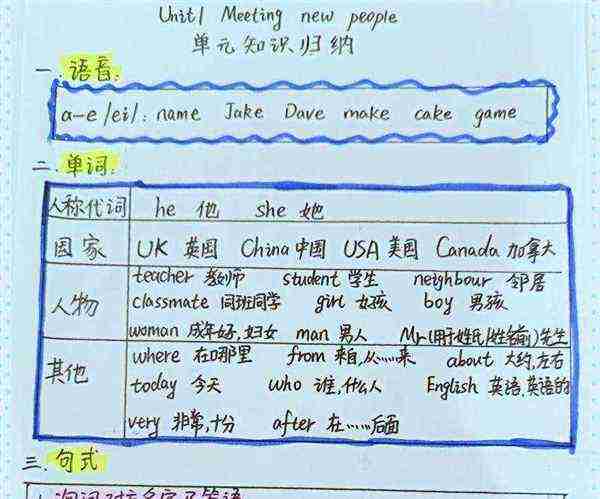 Unit1 Meeting new people
单元知识归纳
一.语音:
a-e /ei/: name Jake Dave make cake game
二.单词:
人称代词 he 他 she 她
国家 UK 英国 China 中国 USA 美国 Canada 加拿大
人物 teacher 教师 student 学生 neighbour 邻居
classmate 同班同学 girl 女孩 boy 男孩
woman 成年女子,妇女 man 男人 Mr(用于姓氏/姓名前)先生
其他 where 在哪里 from 来自,从……来 about 大约,左右
today 今天 who 谁,什么人 English 英语,英语的
very 非常,十分 after 在……后面
三.句式